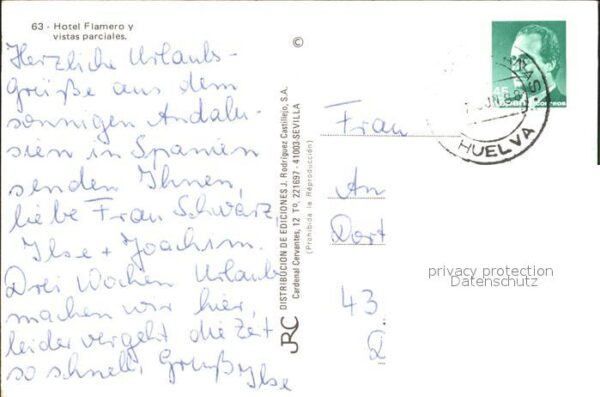 63 - Hotel Flamero y
vistas parciales.
Herzliche Urlaubs-
Grüße aus dem
sonnigen Andalu-
sien in Spanien
senden Ihnen,
liebe Frau Schwarz,
Ilse + Joachim.
Drei Wochen Urlaub
machen wir hier,
leider vergeht die Zeit
so schnell, Gruß Ilse
©
DISTRIBUCION DE EDICIONES J. Rodríguez Castillejo, S.A.
Cardenal Cervantes, 12 Tº. 221697 - 41003-SEVILLA
(Prohibida la Reproducción)
JRC
45
CORREOS
HUELVA
Frau
An
Dort
43
D
privacy protection
Datenschutz